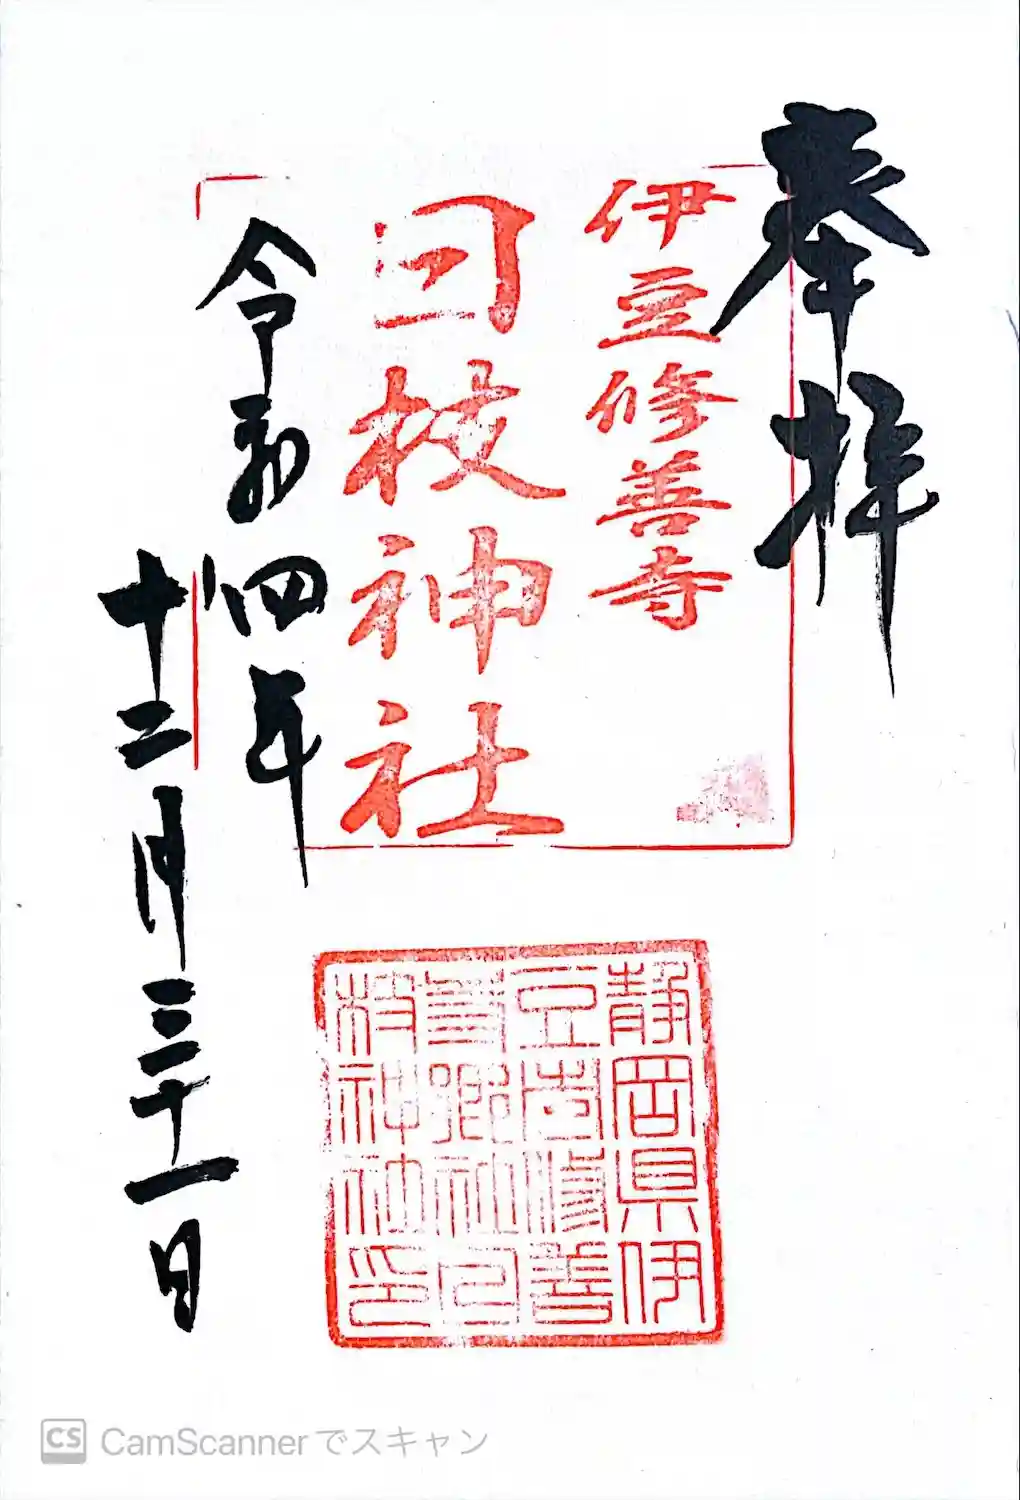 奉拝
伊豆修善寺
日枝神社
令和四年
十二月三十一日
静岡県伊
豆修善
郷社日
枝神社印
CS CamScannerでスキャン